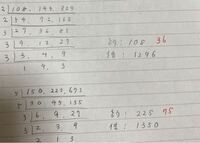 2 108, 144, 324
2 54, 72, 162
3 27, 36, 81
3 9, 12, 27
3 3, 4, 9
1 4 3
約: 108 36
倍: 1296
5 150, 225, 675
5 30 45, 135
3 6, 9 27
3 2, 3, 9
2 1 3
約: 225 75
倍: 1350